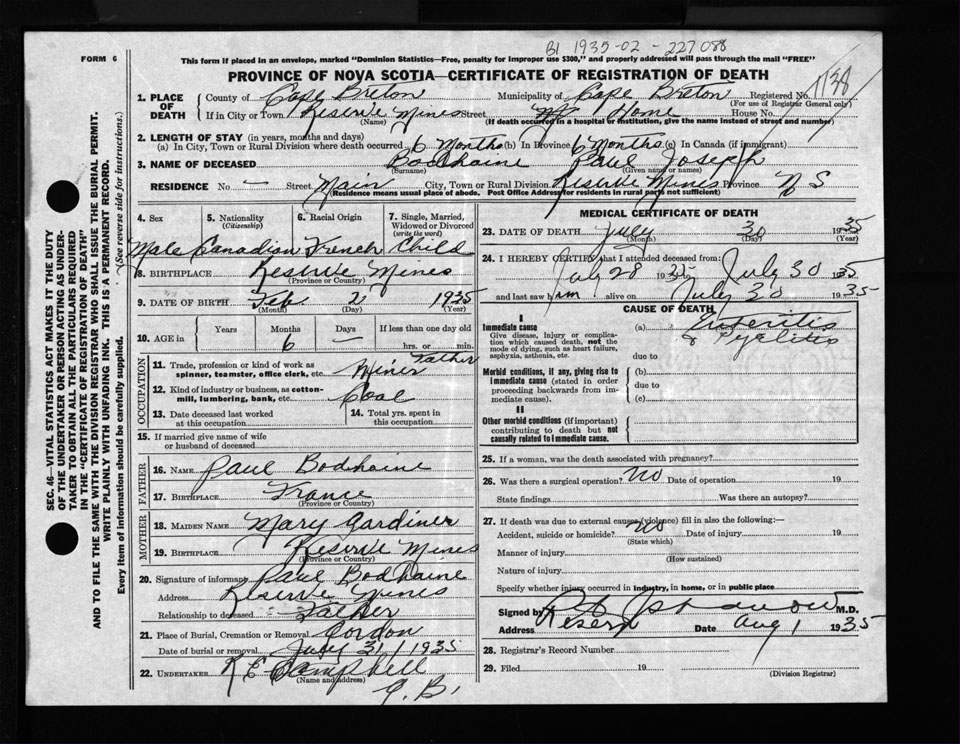 B1 1935-02-227088
FORM 6
This form if placed in an envelope, marked "Dominion Statistics—Free, penalty for improper use $300," and properly addressed will pass through the mail "FREE"
PROVINCE OF NOVA SCOTIA—CERTIFICATE OF REGISTRATION OF DEATH
1138
1. PLACE OF DEATH
County of Cape Breton Municipality of Cape Breton Registered No.
(For use of Registrar General only)
If in City or Town Reserve Mines Street at Home House No.
(Name) (If death occurred in a hospital or institution, give the name instead of street and number)
2. LENGTH OF STAY (in years, months and days)
(a) In City, Town or Rural Division where death occurred 6 Months (b) In Province 6 Months (c) In Canada (if immigrant)
3. NAME OF DECEASED Bodhaine Paul Joseph
(Surname) (Given name or names)
RESIDENCE No. — Street Main City, Town or Rural Division Reserve Mines Province N S
(Residence means usual place of abode. Post Office Address for residents in rural parts not sufficient)
4. Sex 5. Nationality (Citizenship) 6. Racial Origin 7. Single, Married, Widowed or Divorced (write the word)
Male Canadian French Child
8. BIRTHPLACE Reserve Mines
(Province or Country)
9. DATE OF BIRTH Feb 2 1935
(Month) (Day) (Year)
10. AGE in Years Months Days If less than one day old
6 — hrs. or min.
OCCUPATION
11. Trade, profession or kind of work as spinner, teamster, office clerk, etc. Miner Father
12. Kind of industry or business, as cotton-mill, lumbering, bank, etc. Coal
13. Date deceased last worked at this occupation
14. Total yrs. spent in this occupation
15. If married give name of wife or husband of deceased
FATHER
16. NAME Paul Bodhaine
17. BIRTHPLACE France
(Province or Country)
MOTHER
18. MAIDEN NAME Mary Gardiner
19. BIRTHPLACE Reserve Mines
(Province or Country)
20. Signature of informant Paul Bodhaine
Address Reserve Mines
Relationship to deceased Father
21. Place of Burial, Cremation or Removal Gordon
Date of burial or removal July 31 1935
22. UNDERTAKER
(Name and address)
Campbell
C. B.
MEDICAL CERTIFICATE OF DEATH
23. DATE OF DEATH July 30 1935
(Month) (Day) (Year)
24. I HEREBY CERTIFY that I attended deceased from:
July 28 1935 July 30 1935
and last saw him alive on July 30 1935
CAUSE OF DEATH
I
Immediate cause (a) Enteritis
& Pyelitis
Give disease, injury or complication which caused death, not the mode of dying, such as heart failure, asphyxia, asthenia, etc.
due to
Morbid conditions, if any, giving rise to immediate cause (stated in order proceeding backwards from immediate cause).
(b)
due to
(c)
II
Other morbid conditions (if important) contributing to death but not causally related to immediate cause.
25. If a woman, was the death associated with pregnancy?
26. Was there a surgical operation? No Date of operation 19
State findings Was there an autopsy?
27. If death was due to external causes (violence) fill in also the following:—
Accident, suicide or homicide? No Date of injury 19
(State which)
Manner of injury
(How sustained)
Nature of injury
Specify whether injury occurred in industry, in home, or in public place
Signed by M.D.
Address Reserve Date Aug 1 1935
28. Registrar's Record Number
29. Filed 19
(Division Registrar)
SEC. 46—VITAL STATISTICS ACT MAKES IT THE DUTY
OF THE UNDERTAKER OR PERSON ACTING AS UNDERTAKER TO OBTAIN ALL THE PARTICULARS REQUIRED
IN THE "CERTIFICATE OF REGISTRATION OF DEATH"
AND TO FILE THE SAME WITH THE DIVISION REGISTRAR WHO SHALL ISSUE THE BURIAL PERMIT.
WRITE PLAINLY WITH UNFADING INK. THIS IS A PERMANENT RECORD.
Every item of information should be carefully supplied. (See reverse side for instructions.)